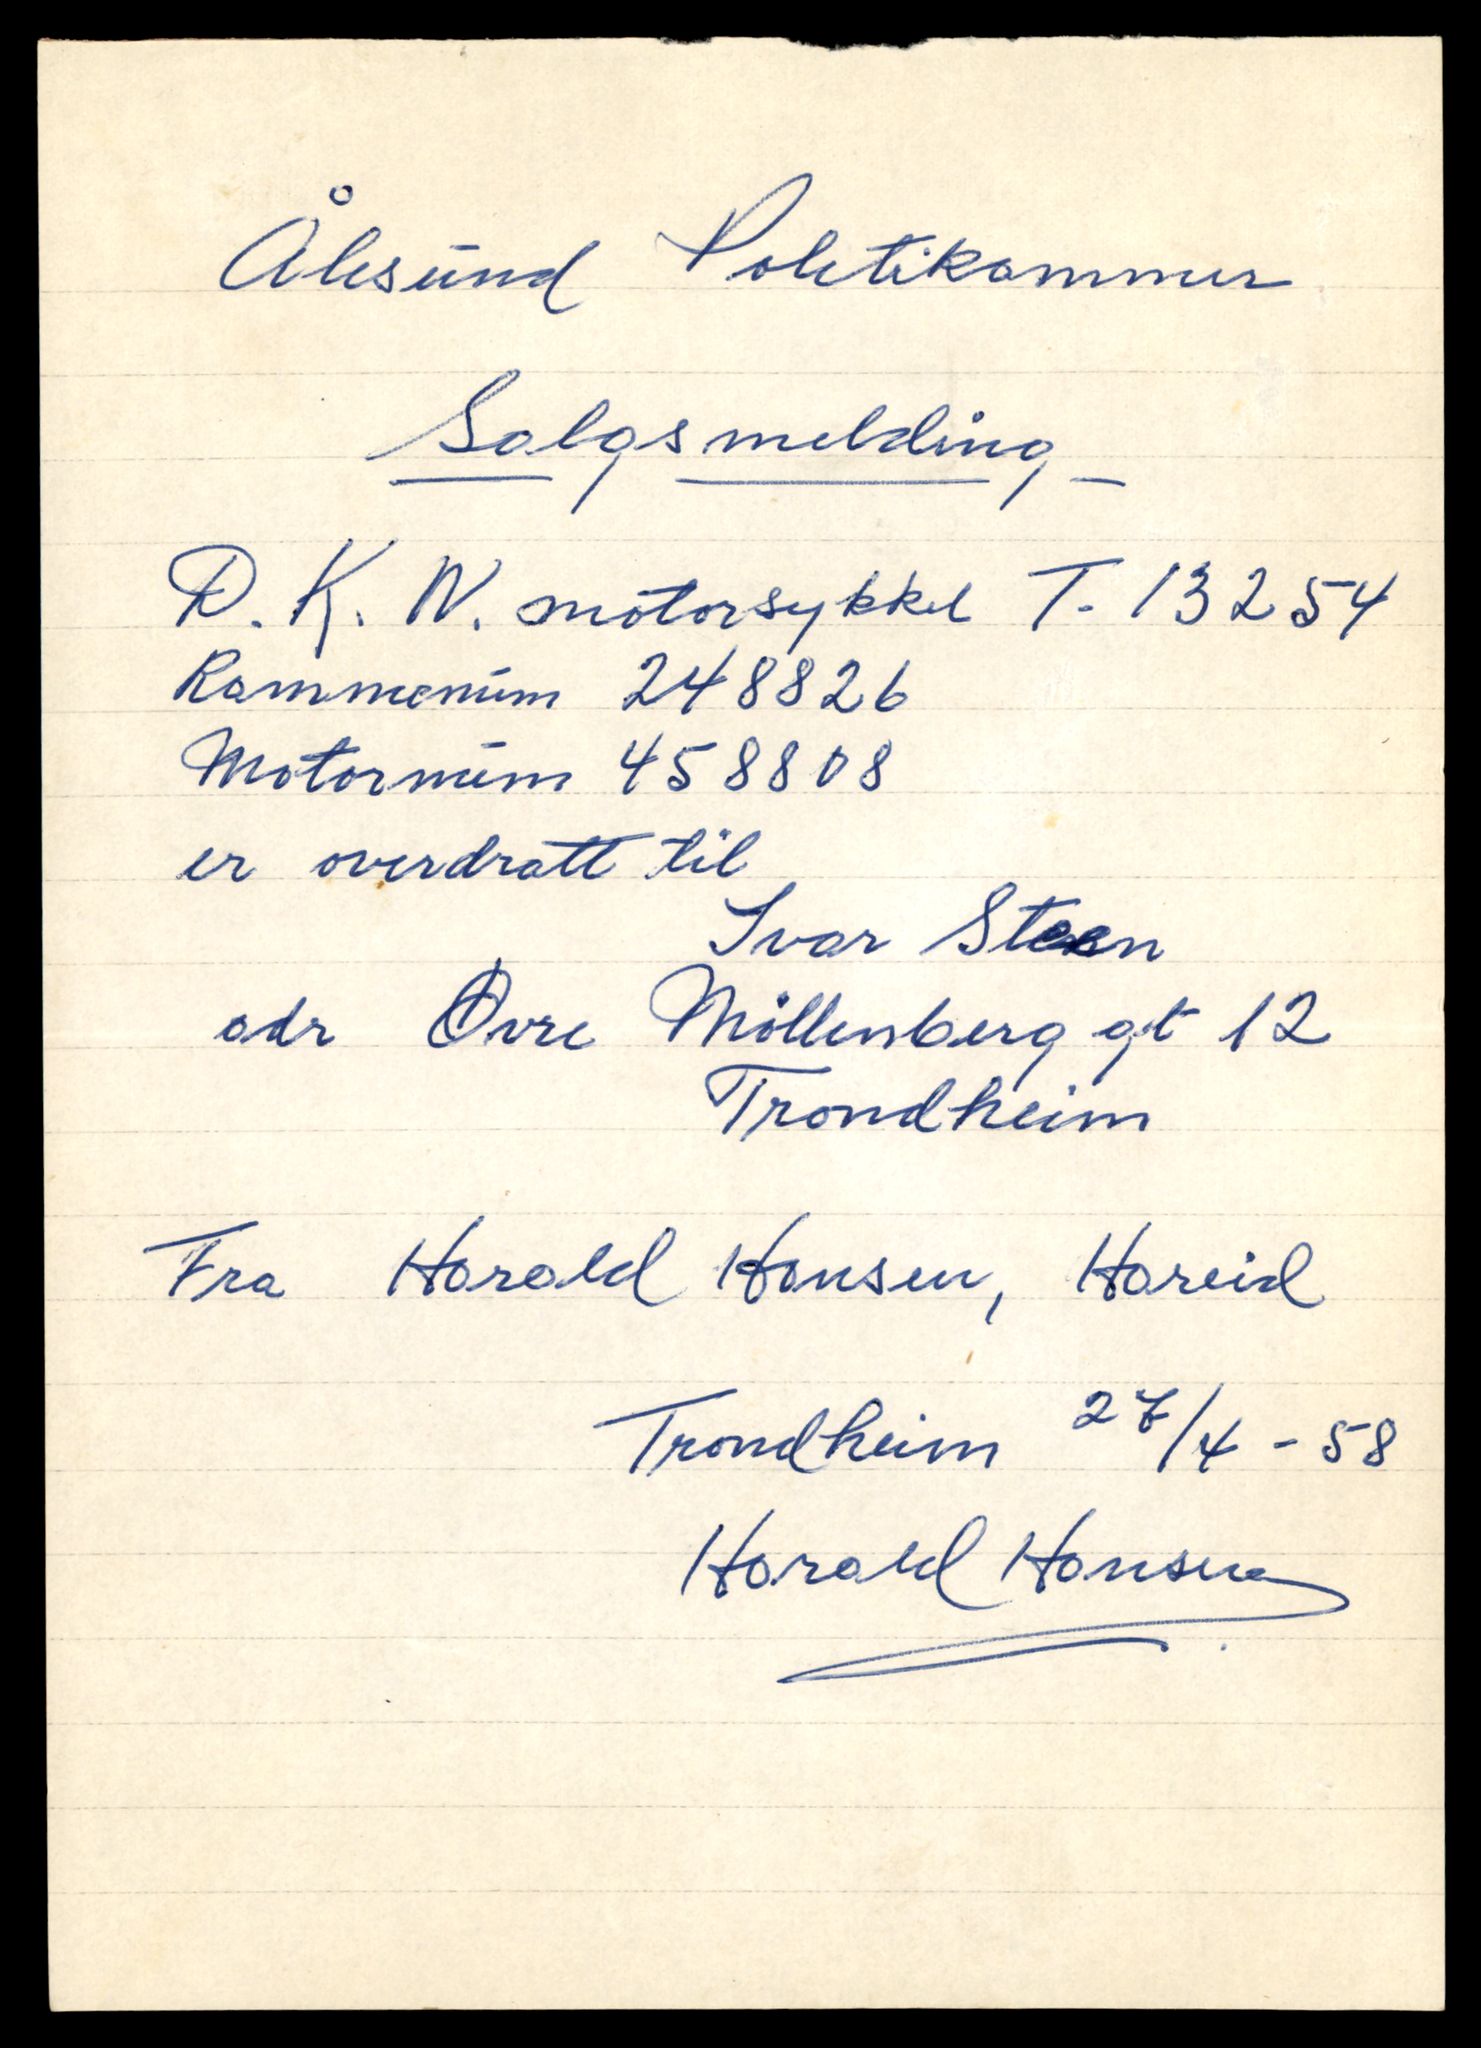 Ålesund Politikammer
Salgsmelding
D. K. W. motorsykkel T. 13254
Rammenum 248826
Motornum 458808
er overdratt til
Ivar Steen
adr Øvre Möllenberg gt 12
Trondheim
Fra Harald Hansen, Hareid
Trondheim 27/4 - 58
Harald Hansen